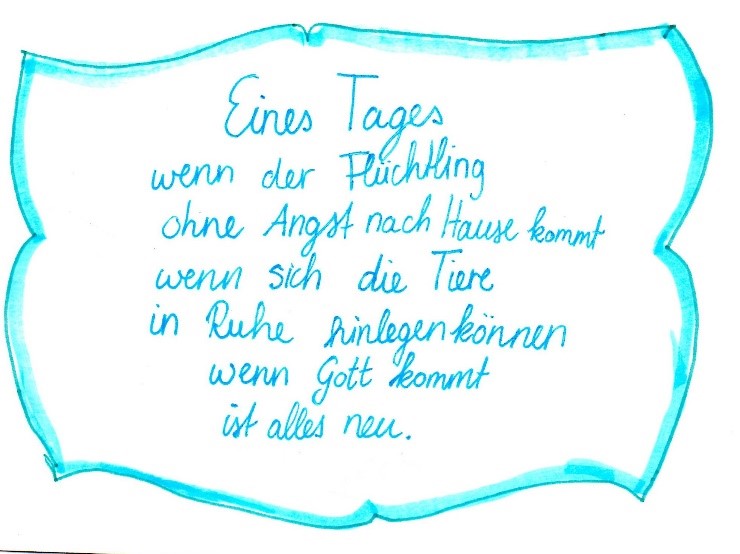 Eines Tages
wenn der Flüchtling
ohne Angst nach Hause kommt
wenn sich die Tiere
in Ruhe hinlegen können
wenn Gott kommt
ist alles neu.